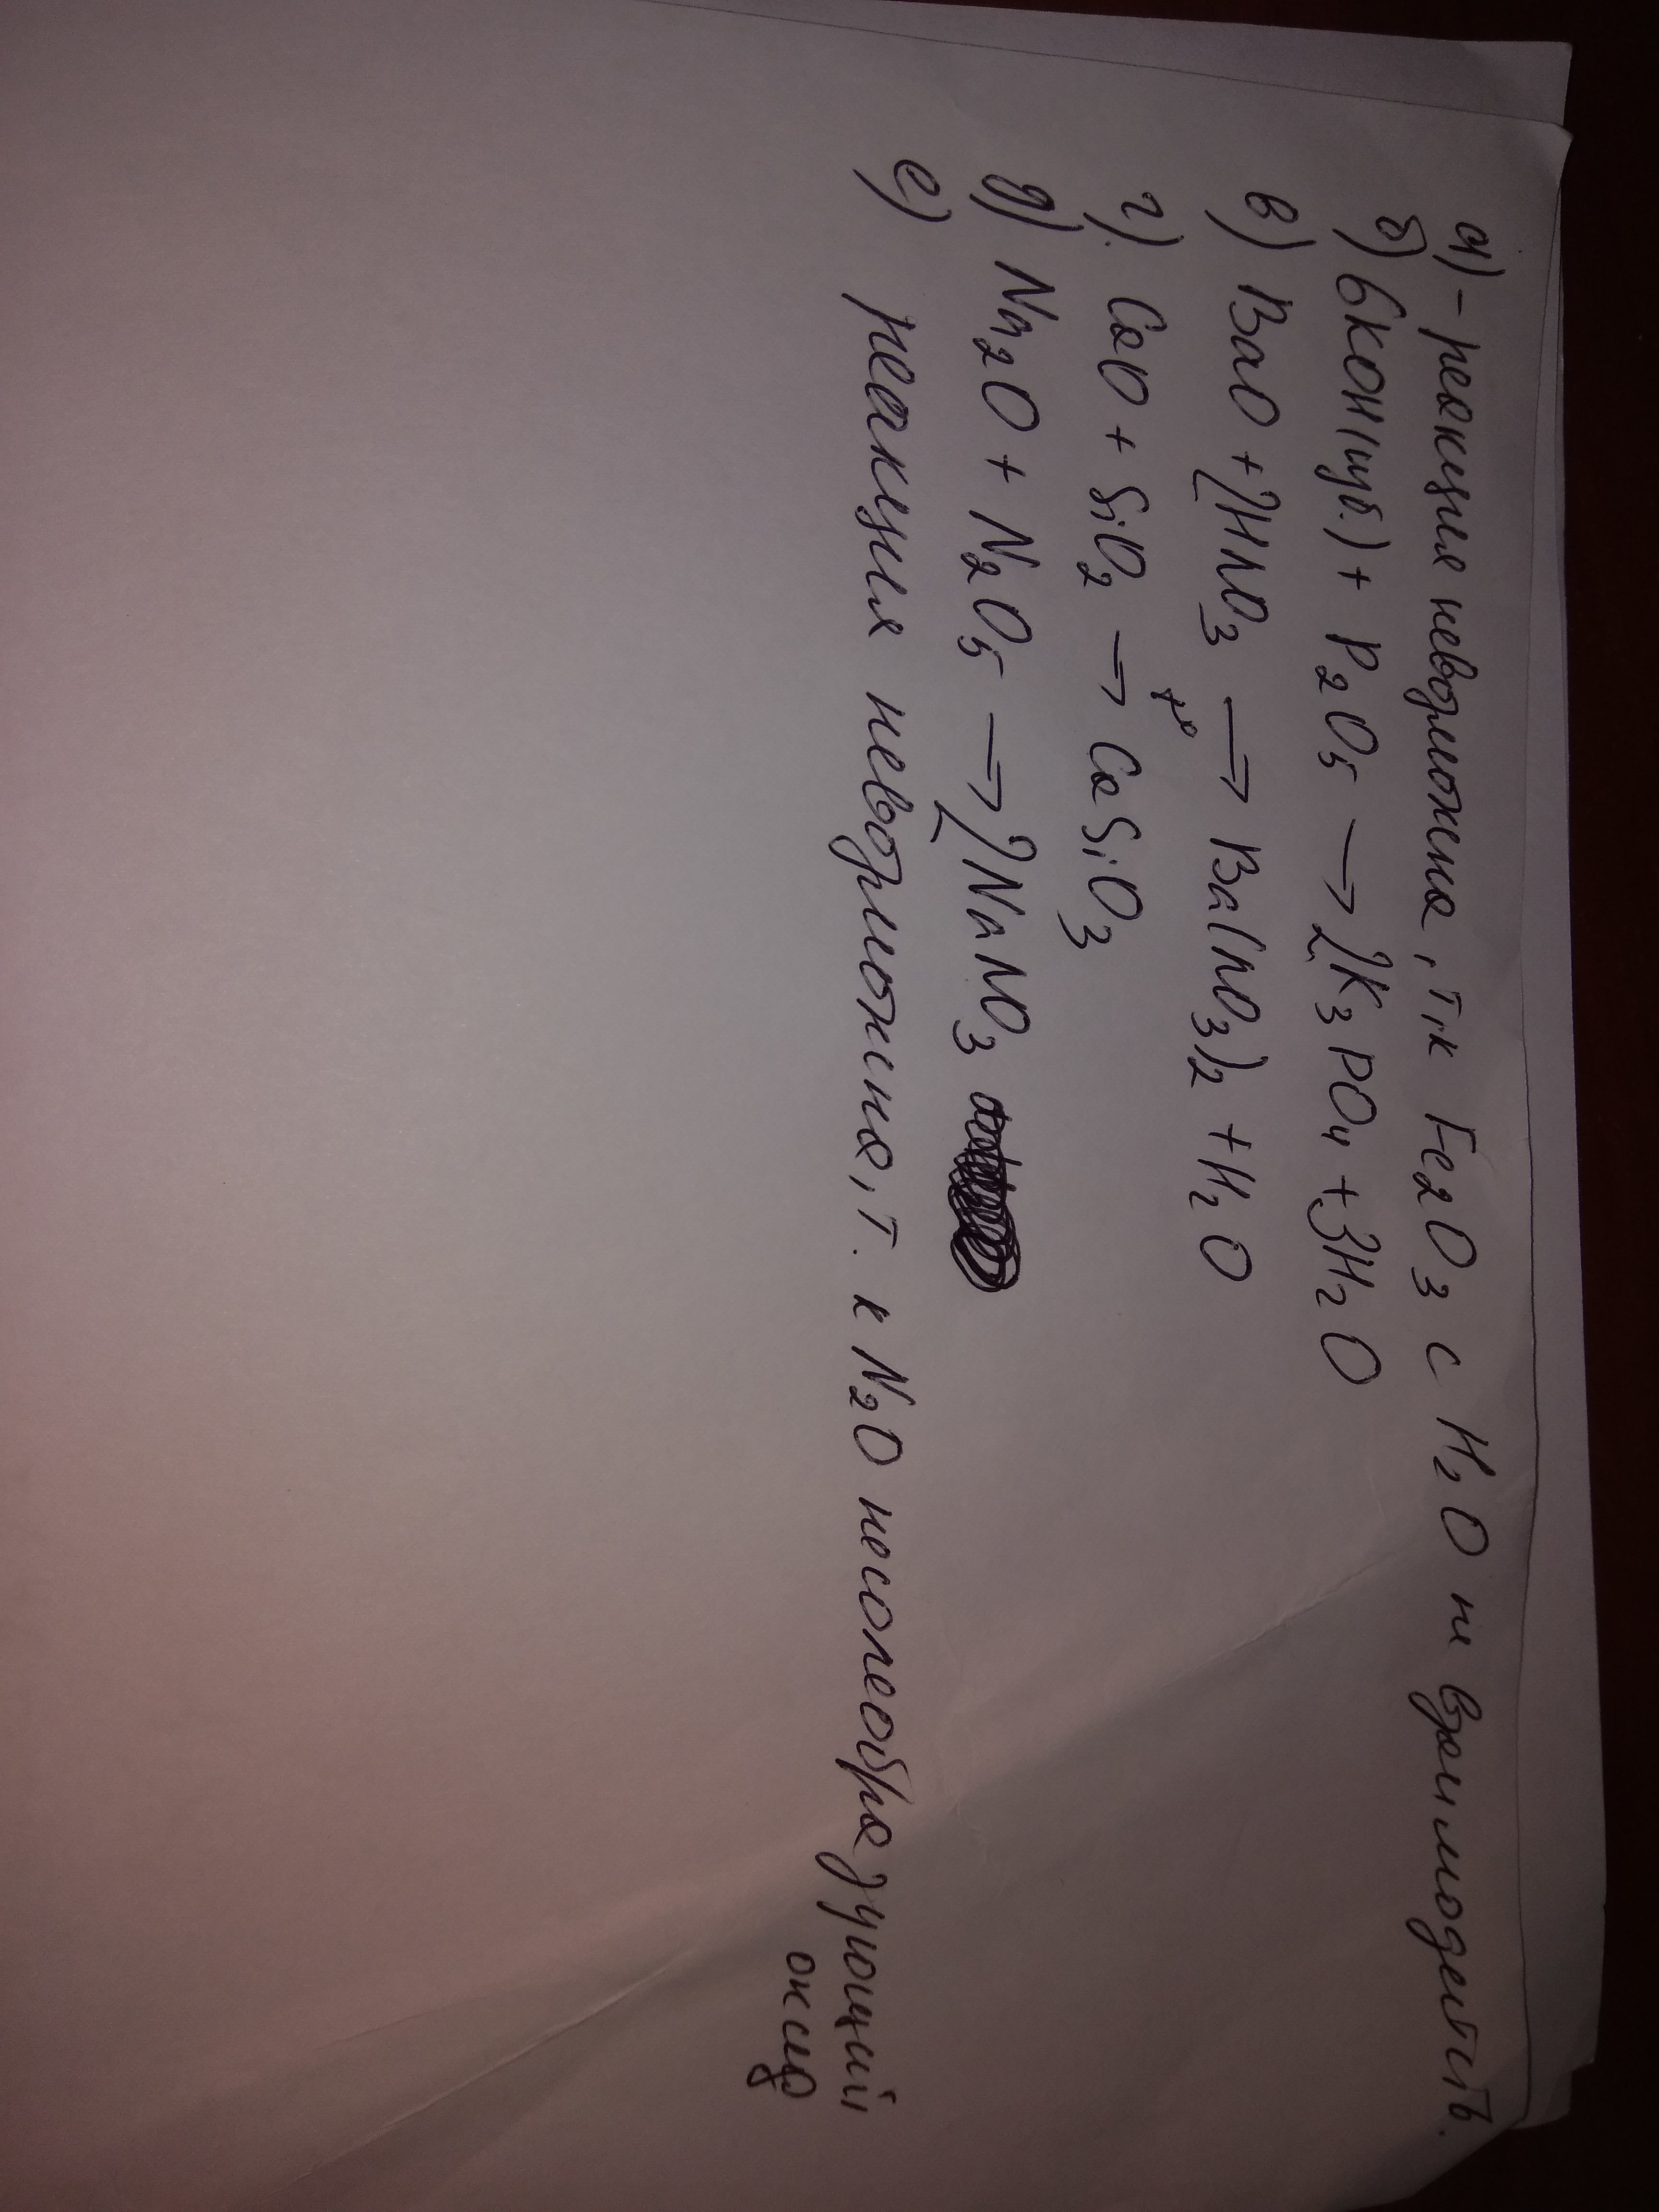 а) - реакция невозможна, т.к Fe2O3 с H2O не взаимодейств.
б) 6KOH(щуб.) + P2O5 → 2K3PO4 + 3H2O
в) BaO + 2HNO3 → Ba(NO3)2 + H2O
г) CaO + SiO2 →t° CaSiO3
д) Na2O + N2O5 → 2NaNO3
е) реакция невозможна, т.к N2O несолеобразующий
оксид